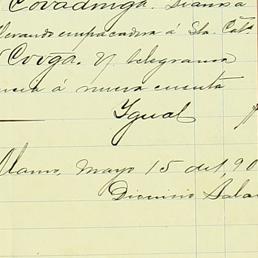 Covadonga.
llevando empacadora á Sta. Cat
Covga. y telegrama
á nueva cuenta
Igual
Alamo, Mayo 15 del 90
Dionisio Sala